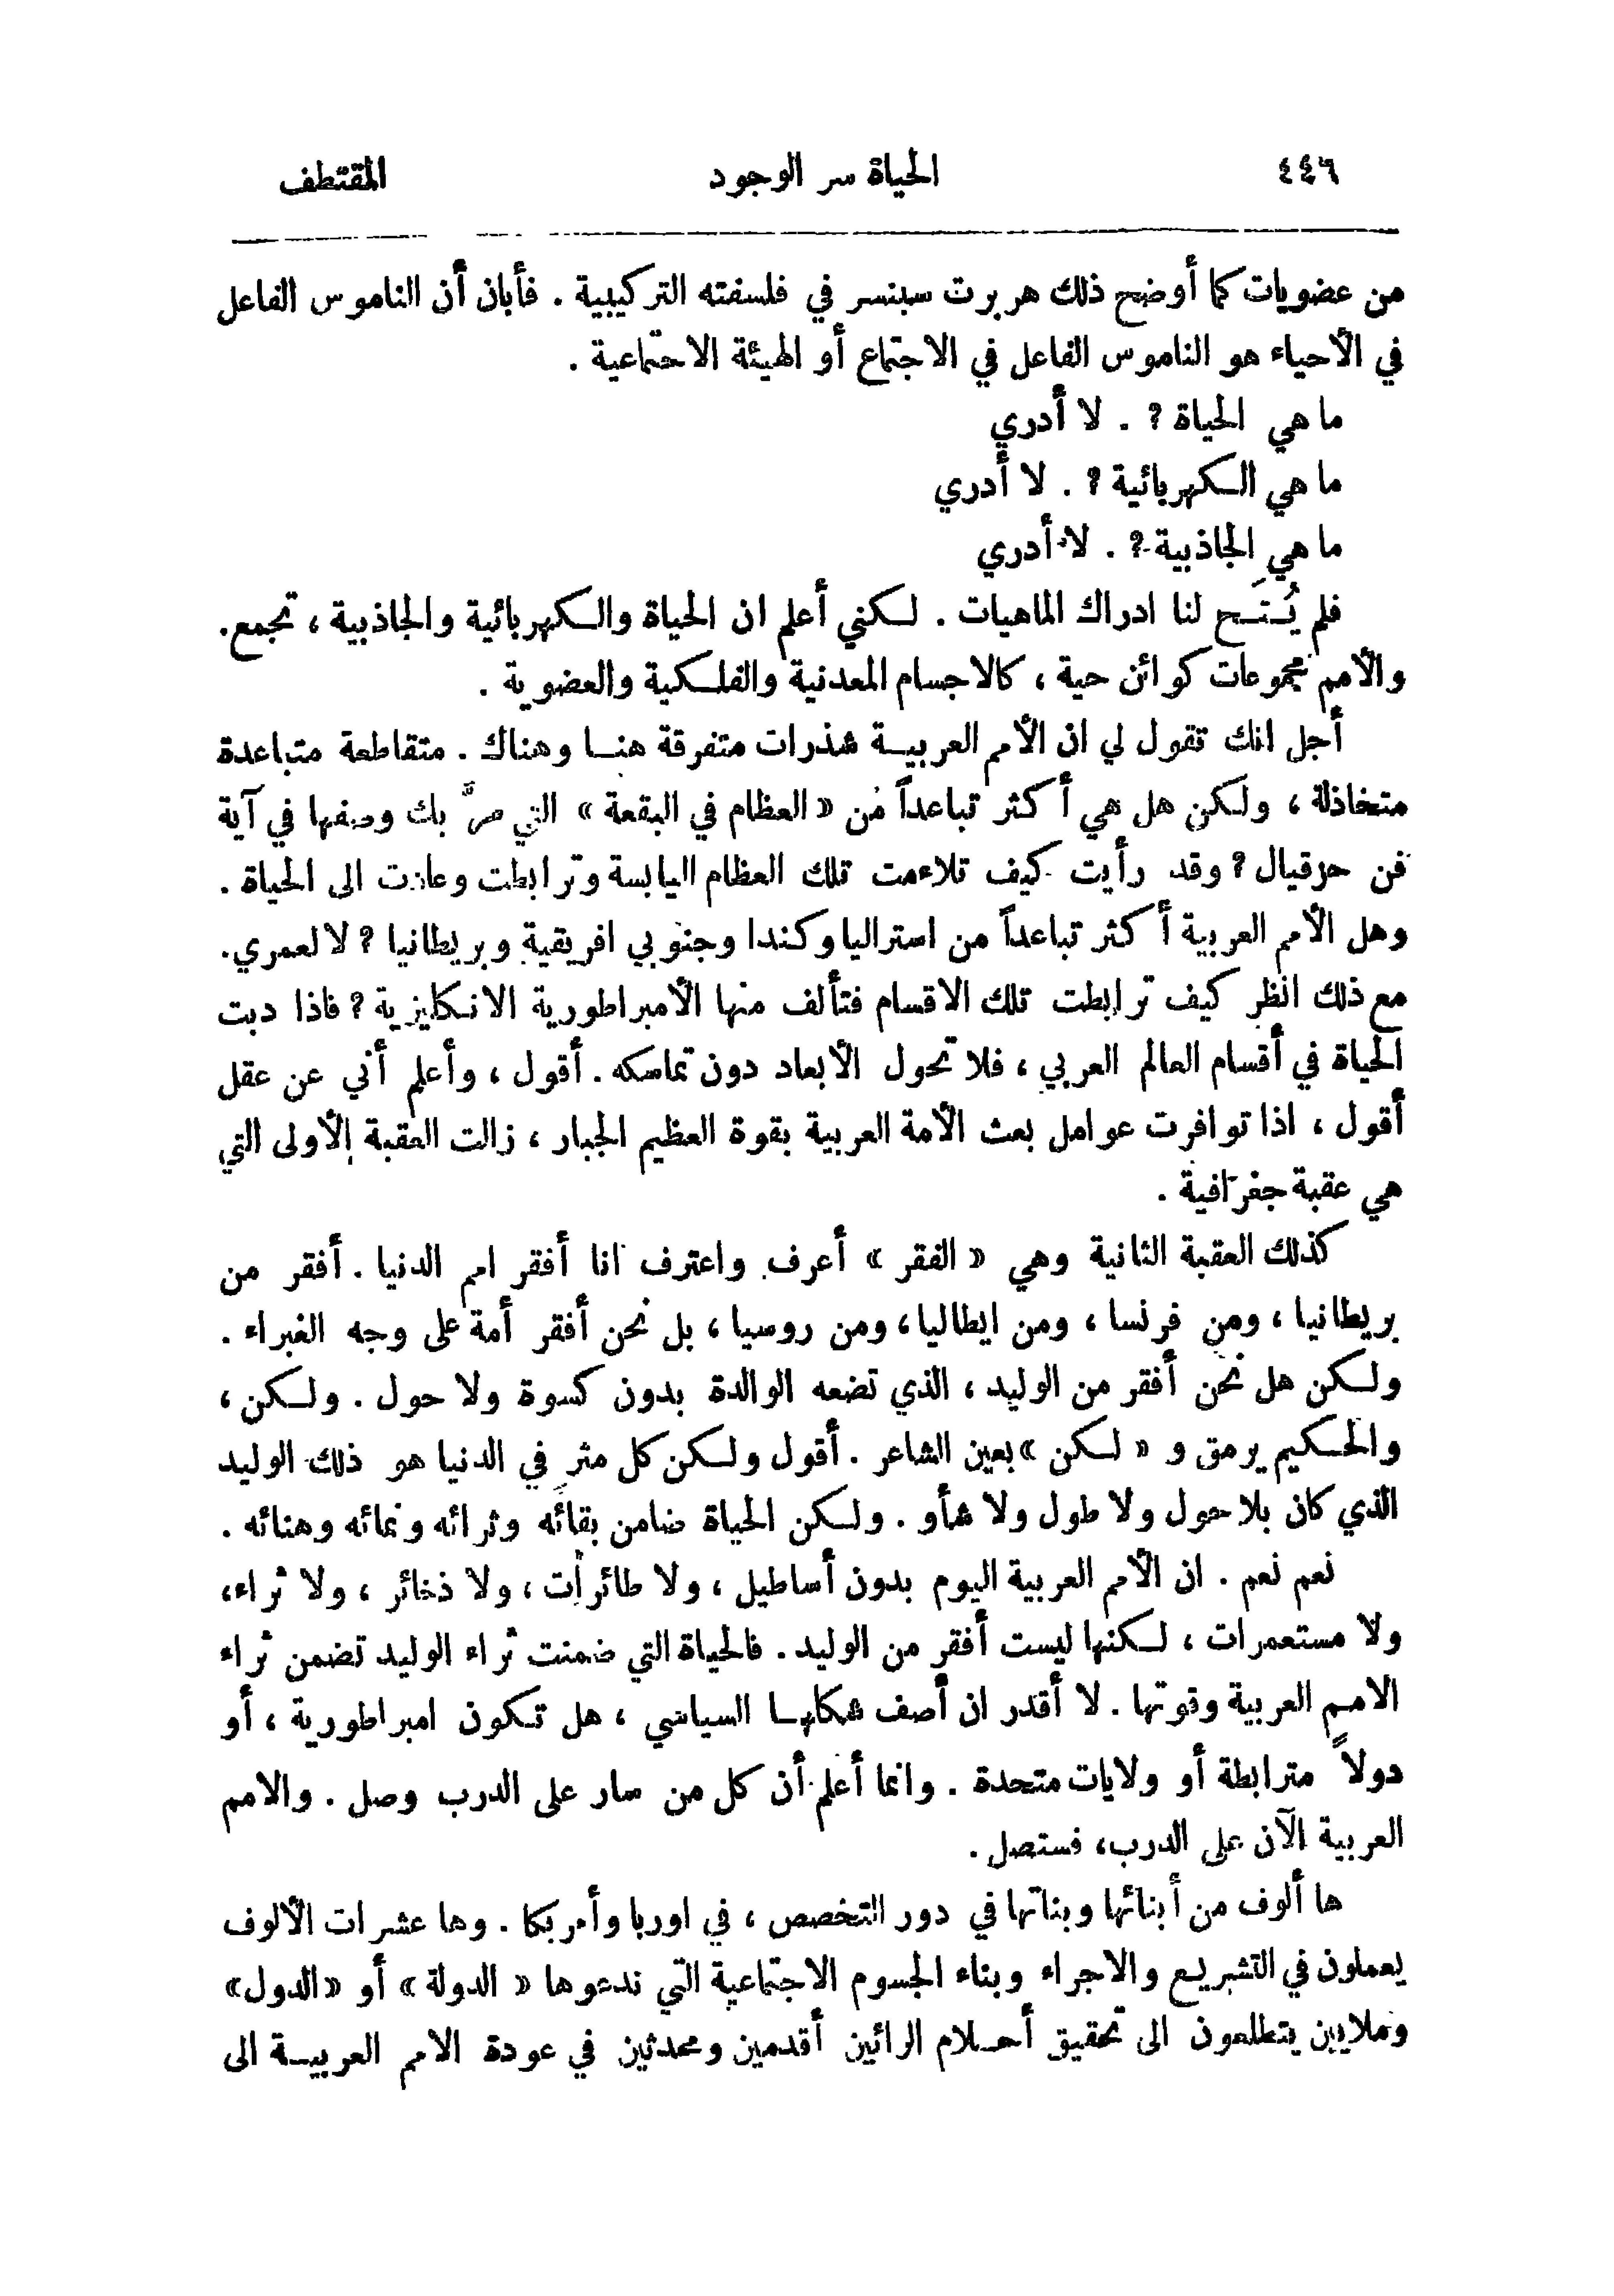 ٤٤٦ الحياة سر الوجود المقتطف
من عضويات كما أوضح ذلك هربرت سبنسر في فلسفته التركيبية . فأبان أن الناموس الفاعل
في الأحياء هو الناموس الفاعل في الاجتماع أو الهيئة الاجتماعية .
ما هي الحياة ؟ . لا أدري
ما هي الكهربائية ؟ . لا أدري
ما هي الجاذبية ؟ . لا أدري
فلم يُتَح لنا ادراك الماهيات . لكني أعلم ان الحياة والكهربائية والجاذبية ، تجمع.
والأمم مجموعات كوائن حية ، كالاجسام المعدنية والفلكية والعضوية .
أجل انك تقول لي ان الأمم العربية شذرات متفرقة هنا وهناك . متقاطعة متباعدة
متخاذلة ، ولكن هل هي أكثر تباعداً من « العظام في البقعة » التي مرَّ بك وصفها في آية
فن حزقيال ؟ وقد رأيت كيف تلاءمت تلك العظام اليابسة وترابطت وعادت الى الحياة .
وهل الأمم العربية أكثر تباعداً من استراليا وكندا وجنوبي افريقية وبريطانيا ؟ لا لعمري.
مع ذلك انظر كيف ترابطت تلك الاقسام فتألف منها الأمبراطورية الانكليزية ؟ فاذا دبت
الحياة في أقسام العالم العربي ، فلا تحول الأبعاد دون تماسكه . أقول ، وأعلم أني عن عقل
أقول ، اذا توافرت عوامل بعث الأمة العربية بقوة العظيم الجبار ، زالت العقبة الأولى التي
هي عقبة جغرافية .
كذلك العقبة الثانية وهي « الفقر » أعرف واعترف انا أفقر امم الدنيا . أفقر من
بريطانيا ، ومن فرنسا ، ومن ايطاليا ، ومن روسيا ، بل نحن أفقر أمة على وجه الغبراء .
ولكن هل نحن أفقر من الوليد ، الذي تضعه الوالدة بدون كسوة ولا حول . ولكن ،
والحكيم يرمق و « لكن » بعين الشاعر . أقول ولكن كل مثرٍ في الدنيا هو ذلك الوليد
الذي كان بلا حول ولا طول ولا شأو . ولكن الحياة ضامن بقائه وثرائه ونمائه وهنائه .
نعم نعم . ان الأمم العربية اليوم بدون أساطيل ، ولا طائرات ، ولا ذخائر ، ولا ثراء،
ولا مستعمرات ، لكنها ليست أفقر من الوليد . فالحياة التي ضمنت ثراء الوليد تضمن ثراء
الامم العربية وقوتها . لا أقدر ان أصف شكلها السياسي ، هل تكون امبراطورية ، أو
دولاً مترابطة أو ولايات متحدة . وانما أعلم أن كل من سار على الدرب وصل . والامم
العربية الآن على الدرب، فستصل .
ها ألوف من أبنائها وبناتها في دور التخصص ، في اوربا وأمريكا . وها عشرات الألوف
يعملون في التشريع والاجراء وبناء الجسوم الاجتماعية التي ندعوها « الدولة » أو « الدول »
وملايين يتطلعون الى تحقيق أحلام الرائين أقدمين ومحدثين في عودة الامم العربية الى